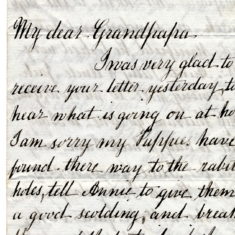 My dear Grandpapa.
I was very glad to
receive your letter, yesterday, to
hear what is going on at ho
I am sorry my Puppie. have
found. there way to the rabit
holes, tell Annie to give them
a good scolding, and break